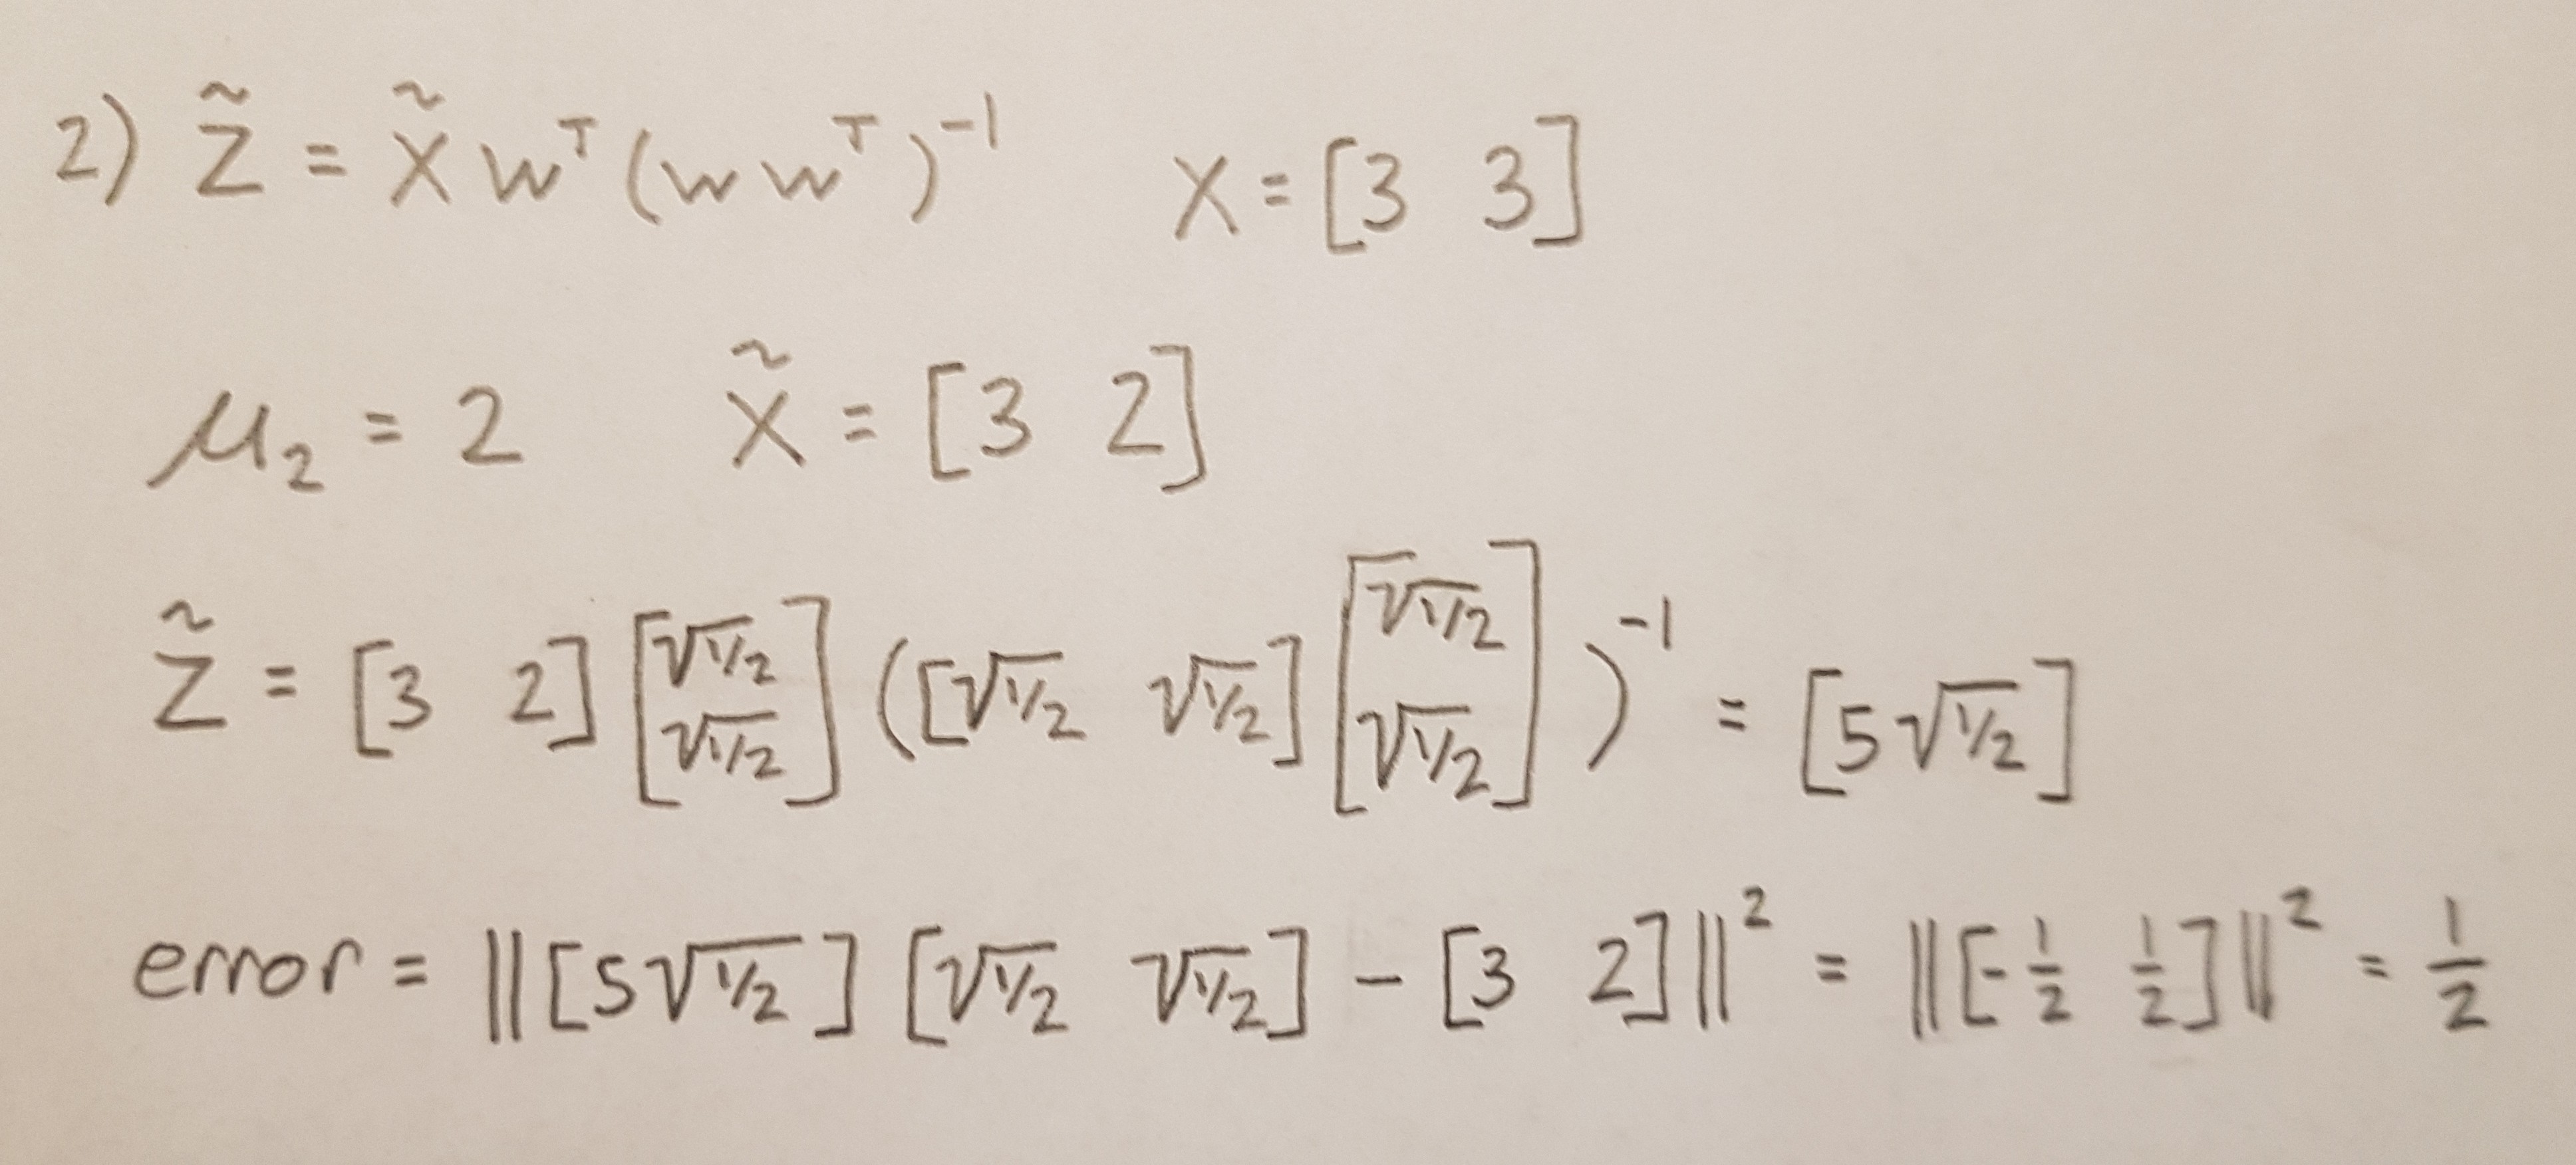 2) Z̃ = X̃ Wᵀ (W Wᵀ)⁻¹ X = [3 3]
μ₂ = 2 X̃ = [3 2]
Z̃ = [3 2] [√1/2 √1/2] ([√1/2 √1/2] [√1/2 √1/2])⁻¹ = [5√1/2]
error = ||[5√1/2] [√1/2 √1/2] − [3 2]||² = ||[-1/2 1/2]||² = 1/2